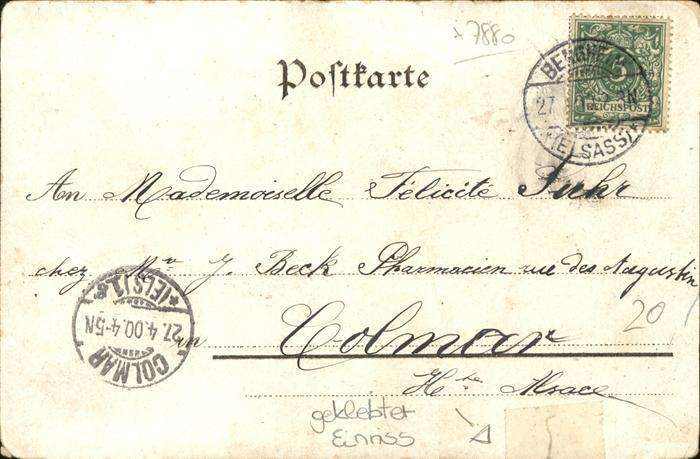 x 7880
Postkarte
5
REICHSPOST
BERGHEIM
27
(ELSASS)
An Mademoiselle Félicité Suhr
chez Mr J. Beck Pharmacien rue des Augustin
in Colmar
Hte Alsace
COLMAR
27.4.00.4-5N
*(ELS.)1.c
20
geklebter
Einriss